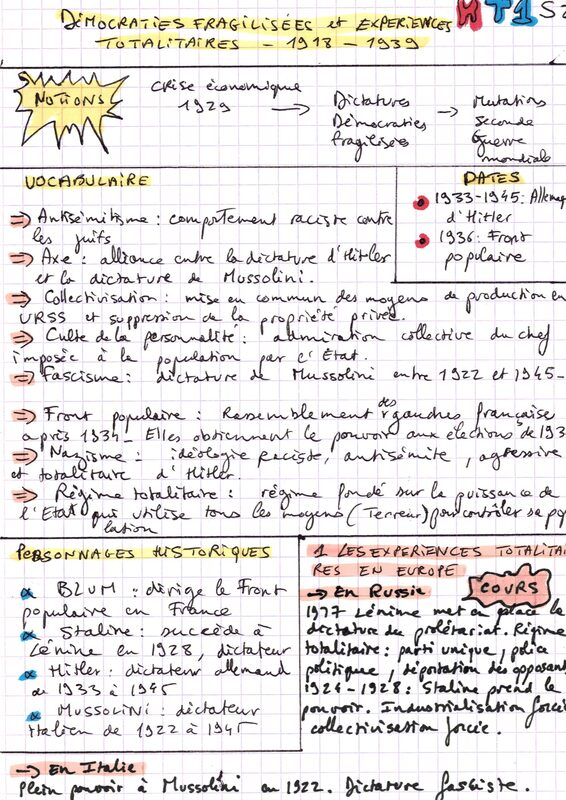 DÉMOCRATIES FRAGILISÉES et EXPERIENCES
TOTALITAIRES - 1918 - 1939
HT1 S2
NOTIONS
Crise économique
1929
→ Dictatures
Démocraties
fragilisées
→ Mutations
seconde
Guerre
mondiale
VOCABULAIRE
⇒ Antisémitisme : comportement raciste contre
les juifs
⇒ Axe : alliance entre la dictature d'Hitler
et la dictature de Mussolini.
DATES
1933-1945: Allemag
d'Hitler
1936: Front
populaire
⇒ Collectivisation : mise en commun des moyens de production en
URSS et suppression de la propriété privée.
⇒ Culte de la personnalité : admiration collective du chef
imposée à la population par l'Etat.
⇒ Fascisme : dictature de Mussolini entre 1922 et 1945-
⇒ Front populaire : Rassemblement des gauches française
après 1934- Elles obtiennent le pouvoir aux élections de 193
⇒ Nazisme - idéologie raciste, antisémite, agressive
et totalitaire d'Hitler.
⇒ Régime totalitaire : régime fondé sur la puissance de
l'Etat qui utilise tous les moyens (Terreur) pour contrôler sa popu
lation
PERSONNAGES HISTORIQUES
BLUM : dirige le Front
populaire en France
Staline : succède à
Lénine en 1928, dictateur
Hitler : dictateur allemand
de 1933 à 1945
MUSSOLINI : dictateur
italien de 1922 à 1945
1 LES EXPERIENCES TOTALITAI
RES EN EUROPE
COURS
→ En Russie
1917 Lénime met en place la
dictature du prolétariat. Régime
totalitaire : parti unique, police
politique, déportation des opposants
1924-1928 : Staline prend le
pouvoir. Industrialisation forcée
collectivisation forcée.
→ En Italie
Plein pouvoir à Mussolini en 1922. Dictature fasciste.